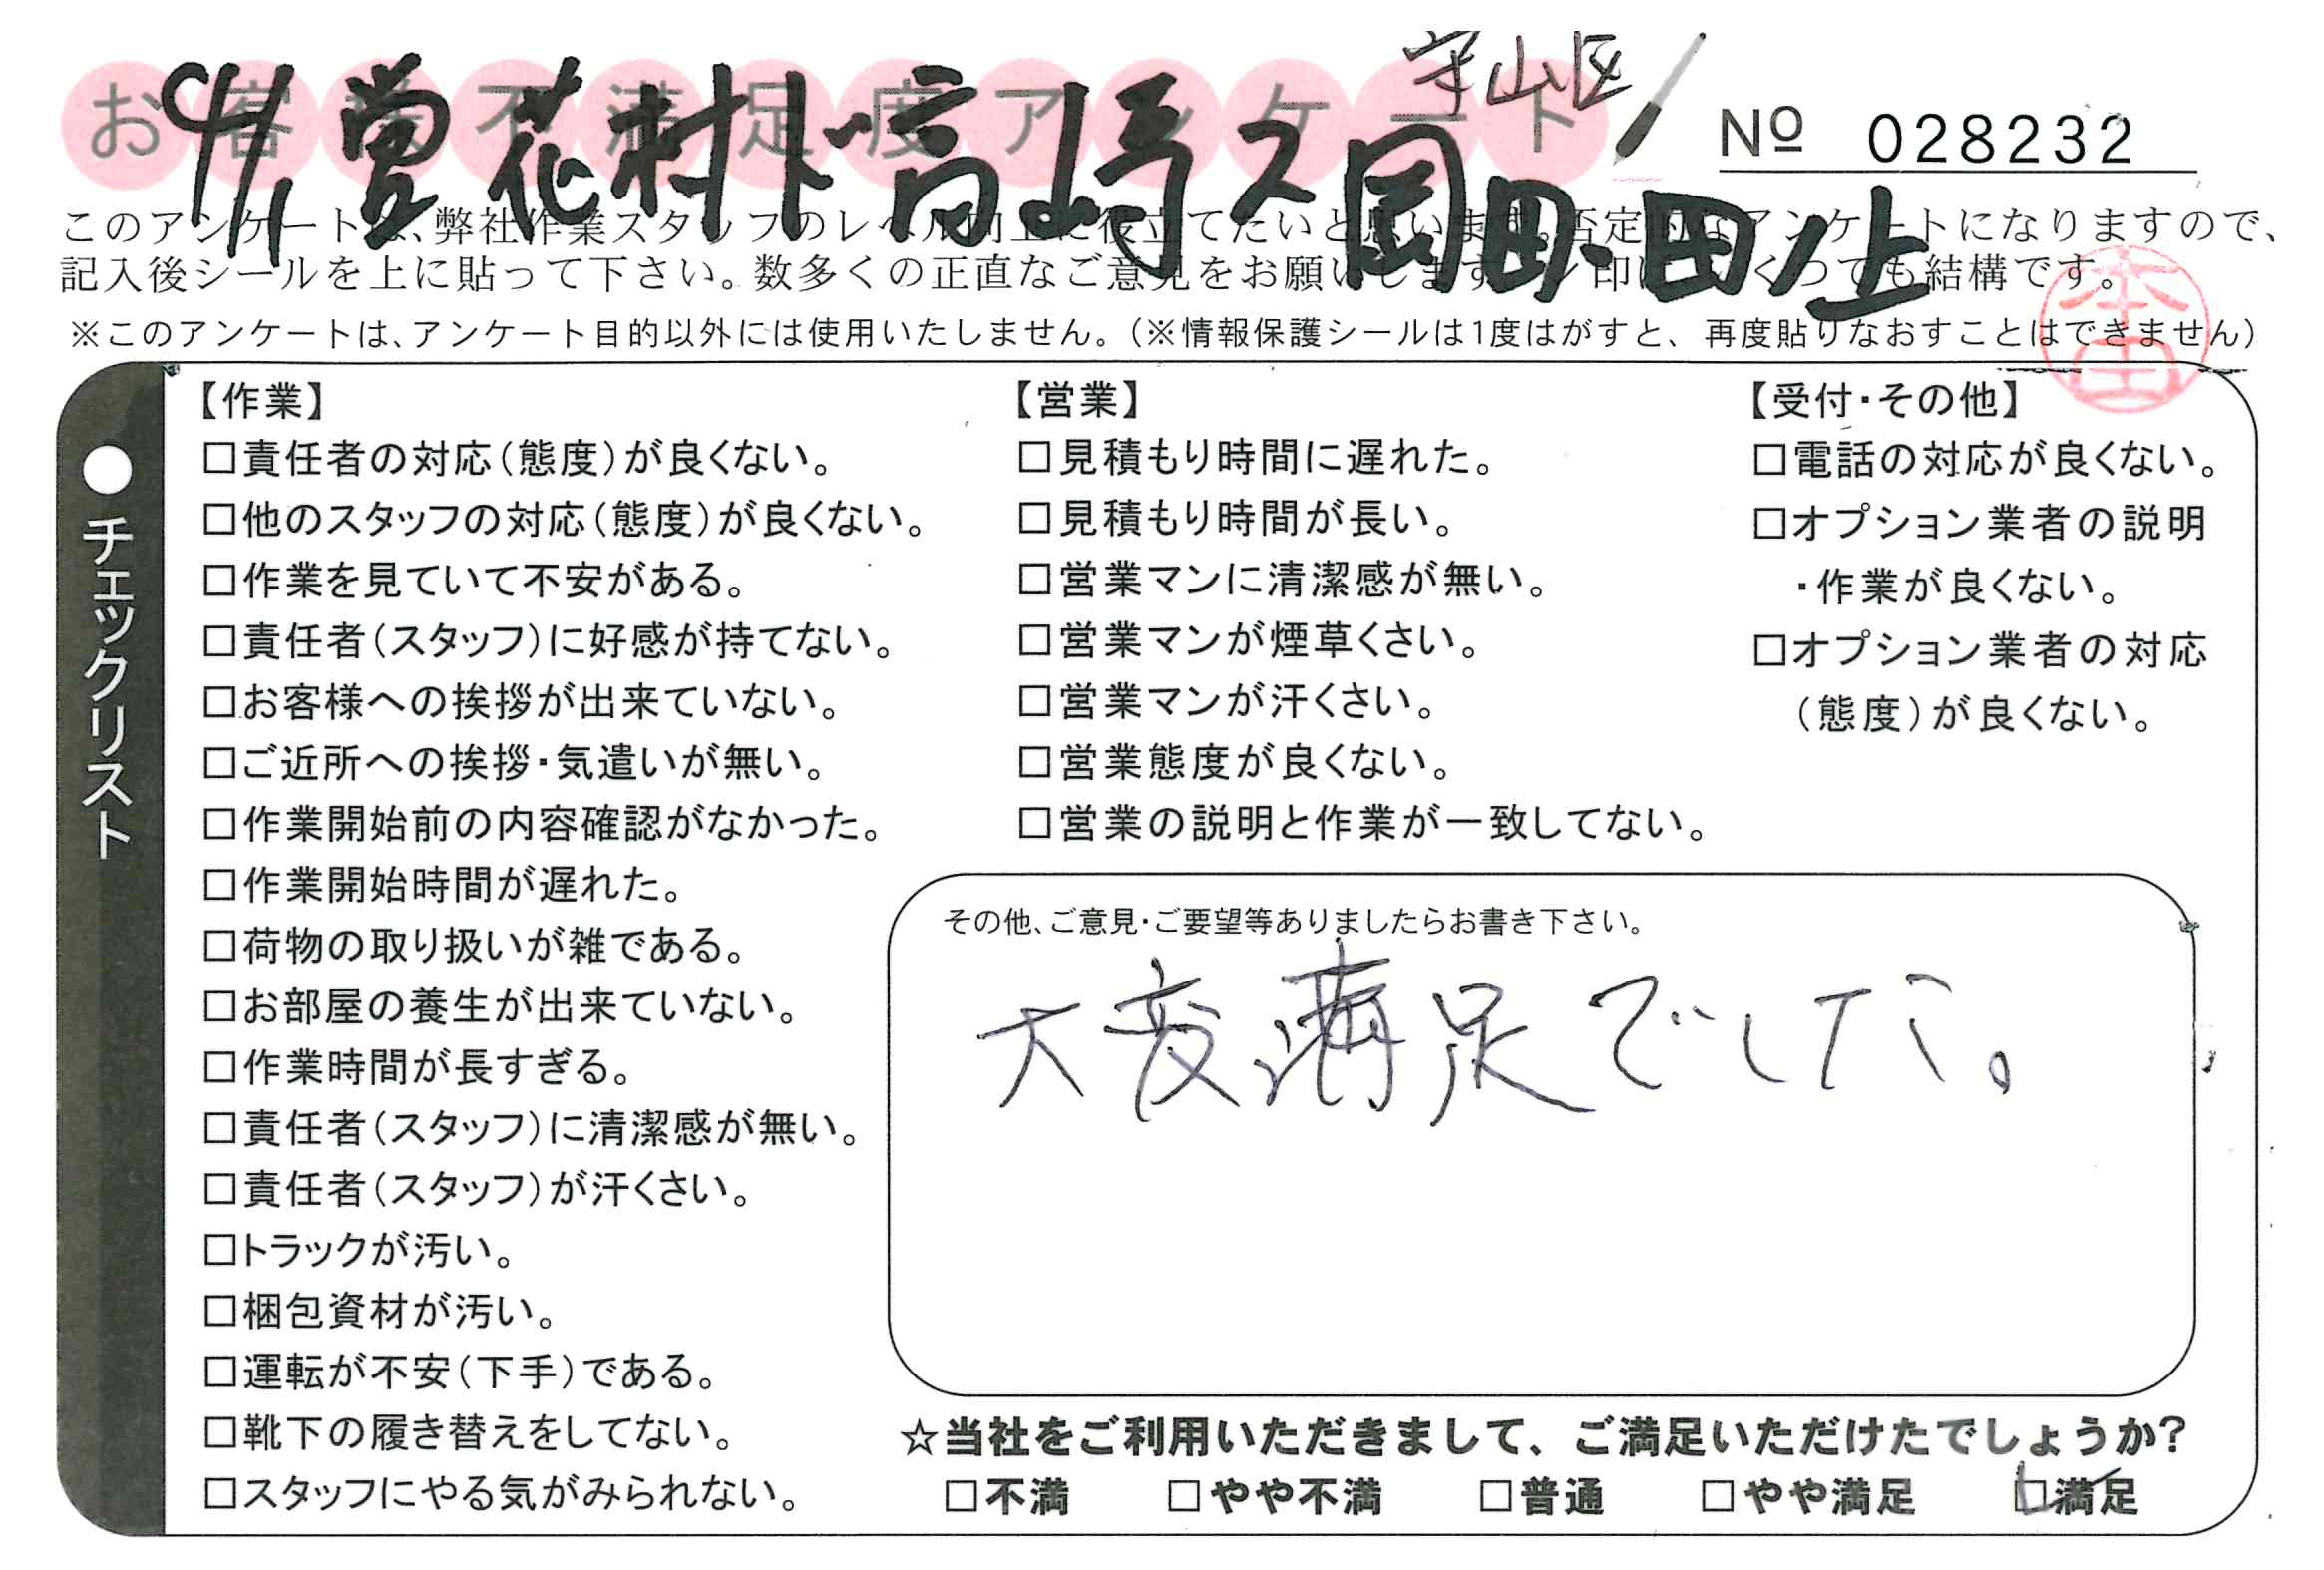 お客様不満足度アンケート
守山区
№ 028232
4/1 営 花村ト 高崎 久岡 田、田ノ上
このアンケートは、弊社作業スタッフのレベル向上に役立てたいと思います。否定的なアンケートになりますので、
記入後シールを上に貼って下さい。数多くの正直なご意見をお願いします。
も結構です。
※このアンケートは、アンケート目的以外には使用いたしません。（※情報保護シールは1度はがすと、再度貼りなおすことはできません）
●チェックリスト
【作業】
□責任者の対応（態度）が良くない。
□他のスタッフの対応（態度）が良くない。
□作業を見ていて不安がある。
□責任者（スタッフ）に好感が持てない。
□お客様への挨拶が出来ていない。
□ご近所への挨拶・気遣いが無い。
□作業開始前の内容確認がなかった。
□作業開始時間が遅れた。
□荷物の取り扱いが雑である。
□お部屋の養生が出来ていない。
□作業時間が長すぎる。
□責任者（スタッフ）に清潔感が無い。
□責任者（スタッフ）が汗くさい。
□トラックが汚い。
□梱包資材が汚い。
□運転が不安（下手）である。
□靴下の履き替えをしてない。
□スタッフにやる気がみられない。
【営業】
□見積もり時間に遅れた。
□見積もり時間が長い。
□営業マンに清潔感が無い。
□営業マンが煙草くさい。
□営業マンが汗くさい。
□営業態度が良くない。
□営業の説明と作業が一致してない。
【受付・その他】
□電話の対応が良くない。
□オプション業者の説明
・作業が良くない。
□オプション業者の対応
（態度）が良くない。
その他、ご意見・ご要望等ありましたらお書き下さい。
大変満足でした。
☆当社をご利用いただきまして、ご満足いただけたでしょうか？
□不満 □やや不満 □普通 □やや満足 ☑満足